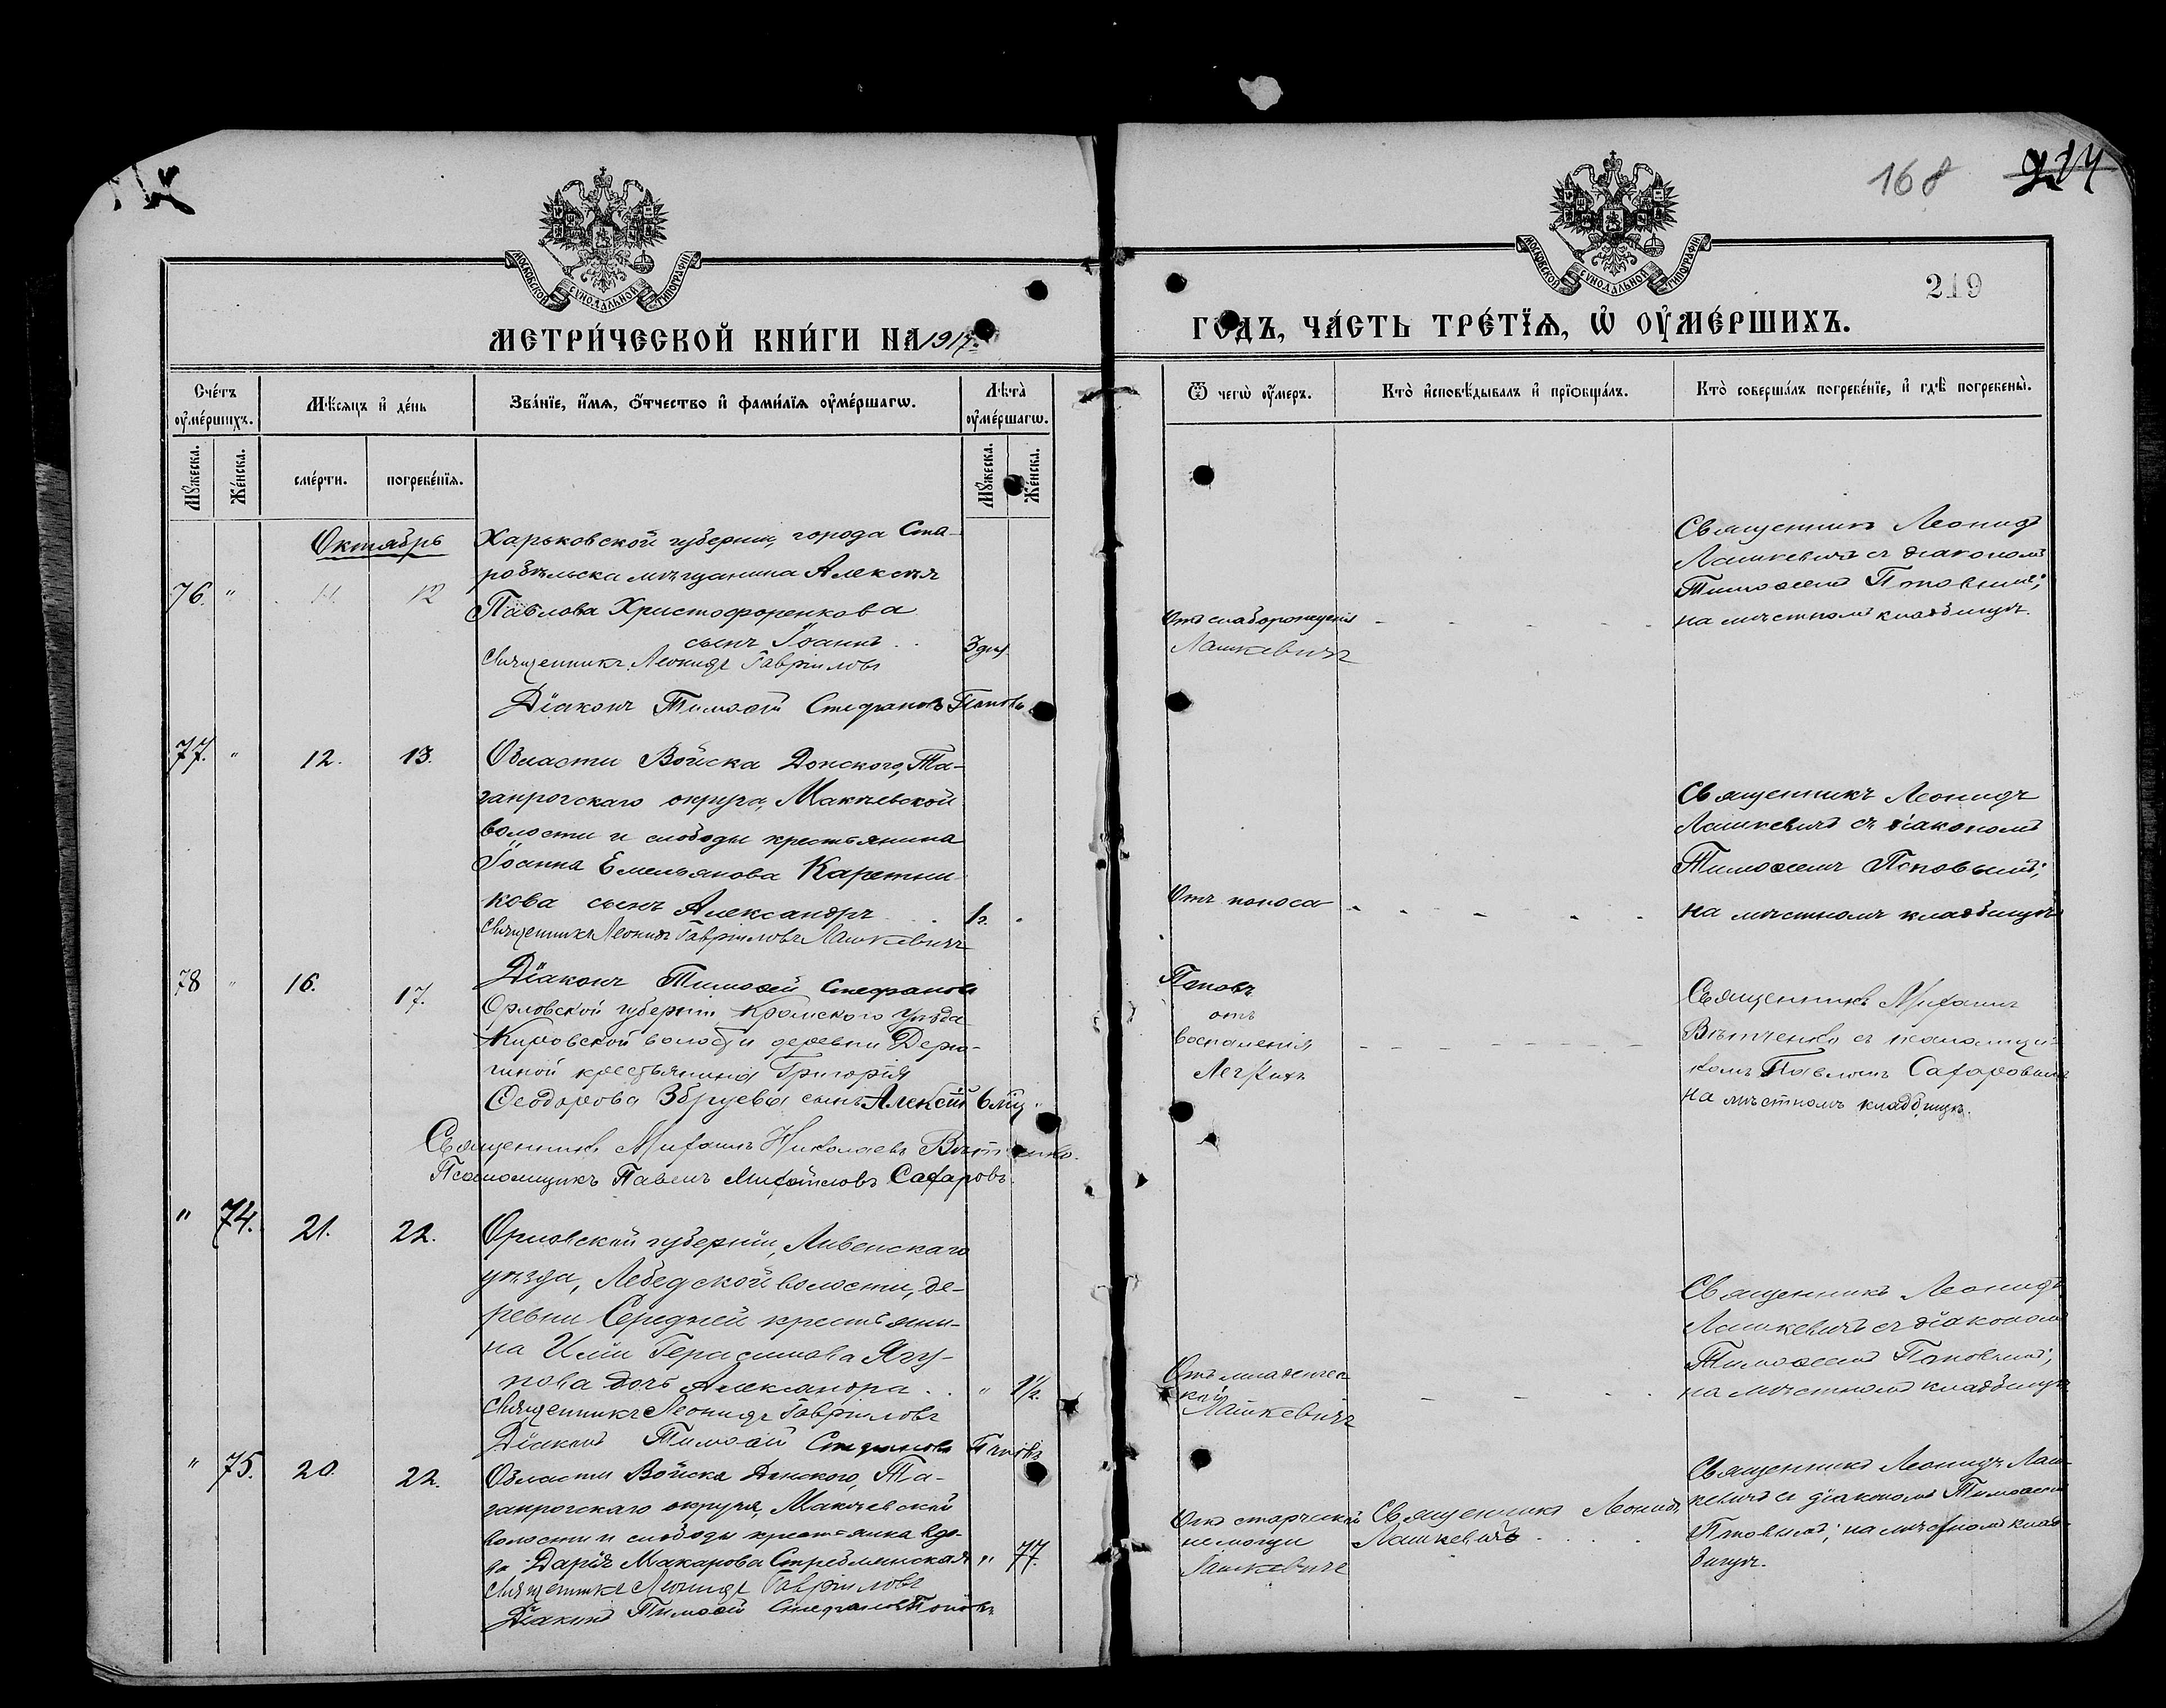 168
219
МОСКОВСКОЙ СѴНОДАЛЬНОЙ ТИПОГРАФІИ
МОСКОВСКОЙ СѴНОДАЛЬНОЙ ТИПОГРАФІИ
МЕТРИ́ЧЕСКОЙ КНИ́ГИ НА 1917
ГО́ДЪ, ЧА́СТЬ ТРЕ́ТЇѦ, Ѡ҆ ОУ҆МЕ́РШИХЪ.
Сче́тъ оу҆ме́ршихъ.
Мꙋ́жеска.
Же́нска.
Мѣ́сяцъ и҆ де́нь
сме́рти.
погребе́нїѧ.
Зва́нїе, и҆́мѧ, ѻ҆́тчество и҆ фами́лїѧ оу҆ме́ршагѡ.
Лѣ́та оу҆ме́ршагѡ.
Мꙋ́жеска.
Же́нска.
Ѿ чегѡ̀ оу҆́меръ.
Кто̀ и҆сповѣ́дывалъ и҆ прїѡбща́лъ.
Кто̀ соверша́лъ погребе́нїе, и҆ гдѣ̀ погребены̀.
Октябрь
76. " 11. 12
Харьковской губерніи, города Ста-
робѣльска мѣщанина Алексѣя
Павлова Христофоренкова
сынъ Іоаннъ . .
3 дн.
Священникъ Леонидъ Гавріиловъ
Діаконъ Тимоѳей Стефановъ Поповъ
Отъ слаборожденія
Лашкевичъ
Священникъ Леонидъ
Лашкевичъ съ діакономъ
Тимоѳеемъ Поповымъ;
на мѣстномъ кладбищѣ.
77. " 12. 13.
Области Войска Донского, Та-
ганрогскаго округа, Макѣевской
волости и слободы крестьянина
Іоанна Емельянова Каретни-
кова сынъ Александръ
1 г.
Священникъ Леонидъ Гавріиловъ Лашкевичъ
Діаконъ Тимоѳей Стефановъ
Поповъ
Отъ поноса
Священникъ Леонидъ
Лашкевичъ съ діакономъ
Тимоѳеемъ Поповымъ;
на мѣстномъ кладбищѣ
78 " 16. 17.
Орловской губерніи Кромского уѣзда
волости деревни
крестьянина Григорія
Ѳеодорова Збруева сынъ Алексѣй
6 мѣц
Священникъ Михаилъ Николаевъ
Псаломщикъ Павелъ Михайловъ Сахаровъ.
отъ
воспаленія
легкихъ
Священникъ Михаилъ
съ псаломщи-
комъ Павломъ Сахаровымъ
на мѣстномъ кладбищѣ.
" 74. 21. 22.
Орловской губерніи, Ливенскаго
уѣзда, Лебедской волости, де-
ревни Средней крестьяни-
на Иліи Герасимова Ягу-
нова дочь Александра . .
Священникъ Леонидъ Гавріиловъ
Діаконъ Тимоѳей Стефановъ Поповъ
Отъ младенчес
кой
Лашкевичъ
Священникъ Леонидъ
Лашкевичъ съ діакономъ
Тимоѳеемъ Поповымъ;
на мѣстномъ кладбищѣ
" 75. 20. 22.
Области Войска Донского, Та-
ганрогскаго округа, Макѣевской
волости и слободы крестьянка вдо-
ва Дарія Макарова
" 77.
Священникъ Леонидъ Гавріиловъ
Діаконъ Тимоѳей Стефановъ Поповъ
Отъ старческой
немощи
Лашкевичъ
Священникъ Леонидъ
Лашкевичъ
Священникъ Леонидъ Лаш-
кевичъ съ діакономъ Тимоѳеемъ
Поповымъ; на мѣстномъ клад-
бищѣ.